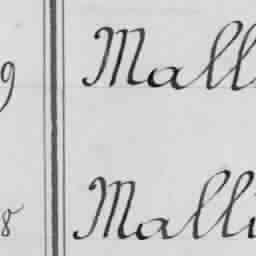 9 Mall
8 Malli